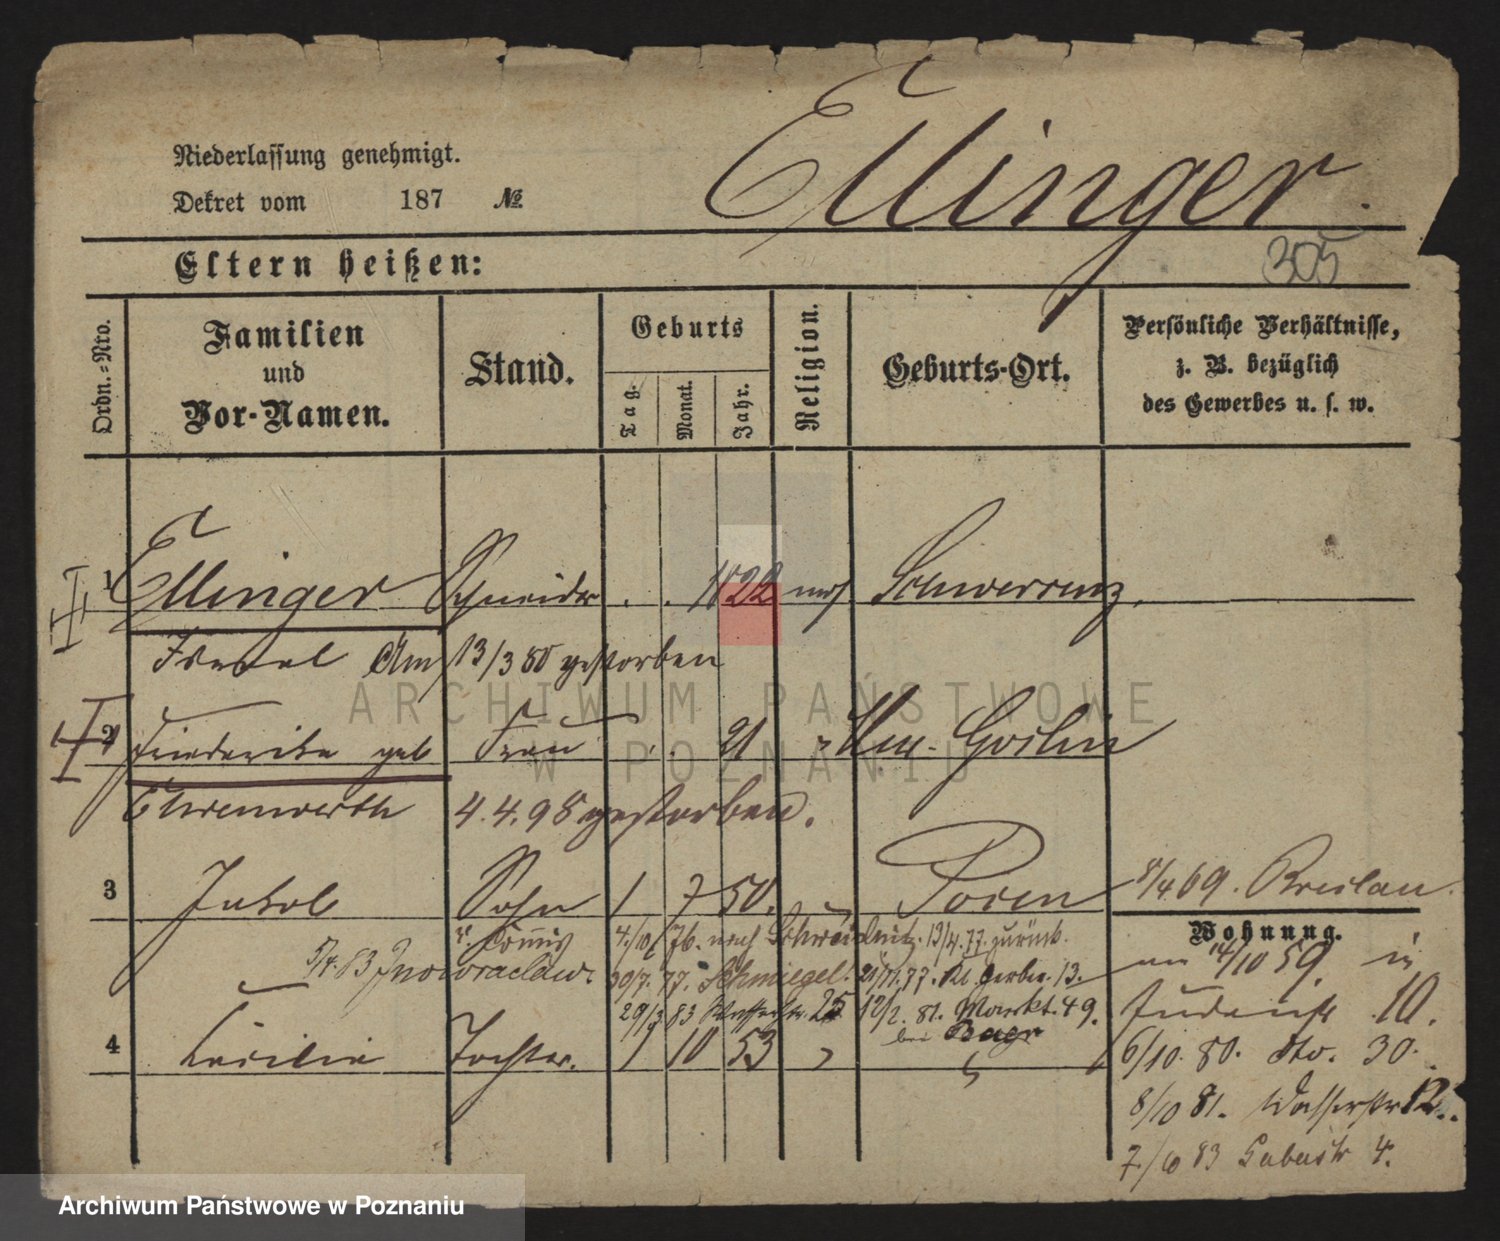 Ellinger.
Niederlassung genehmigt.
Dekret vom 187 №
305
Eltern heißen:
Ordn.-Nro.
Familien
und
Vor-Namen.
Stand.
Geburts
Tag.
Monat.
Jahr.
Religion.
Geburts-Ort.
Persönliche Verhältnisse,
z. B. bezüglich
des Gewerbes u. s. w.
1 Ellinger Schneider . . 1822 mos Schwersenz.
Isra‌el Am 13/3 80 gestorben
2 Friederike geb Frau . . 21 " Mur. Goslin
Ehrenwerth 4.4.98 gestorben.
3 Jakob Sohn 1 7 50. Posen 8/4 69. Breslau.
Wohnung.
4/10 76. nach 13/4.77. zurück.
5/4.83 Inowraclaw. 30/7. 77. Schmiegel. 21/11.77. Kl. Gerber. 13.
29/3 83 Wasserstr. 25 12/2. 81. Markt. 49.
bei Bagr
14/10 59
Judenstr 10.
4 Cäcilie Tochter. 1 10 53
6/10. 80. dto. 30.
8/10 81. Wasserstr 12.
7/10 83 4.
ARCHIWUM PAŃSTWOWE
W POZNANIU
Archiwum Państwowe w Poznaniu